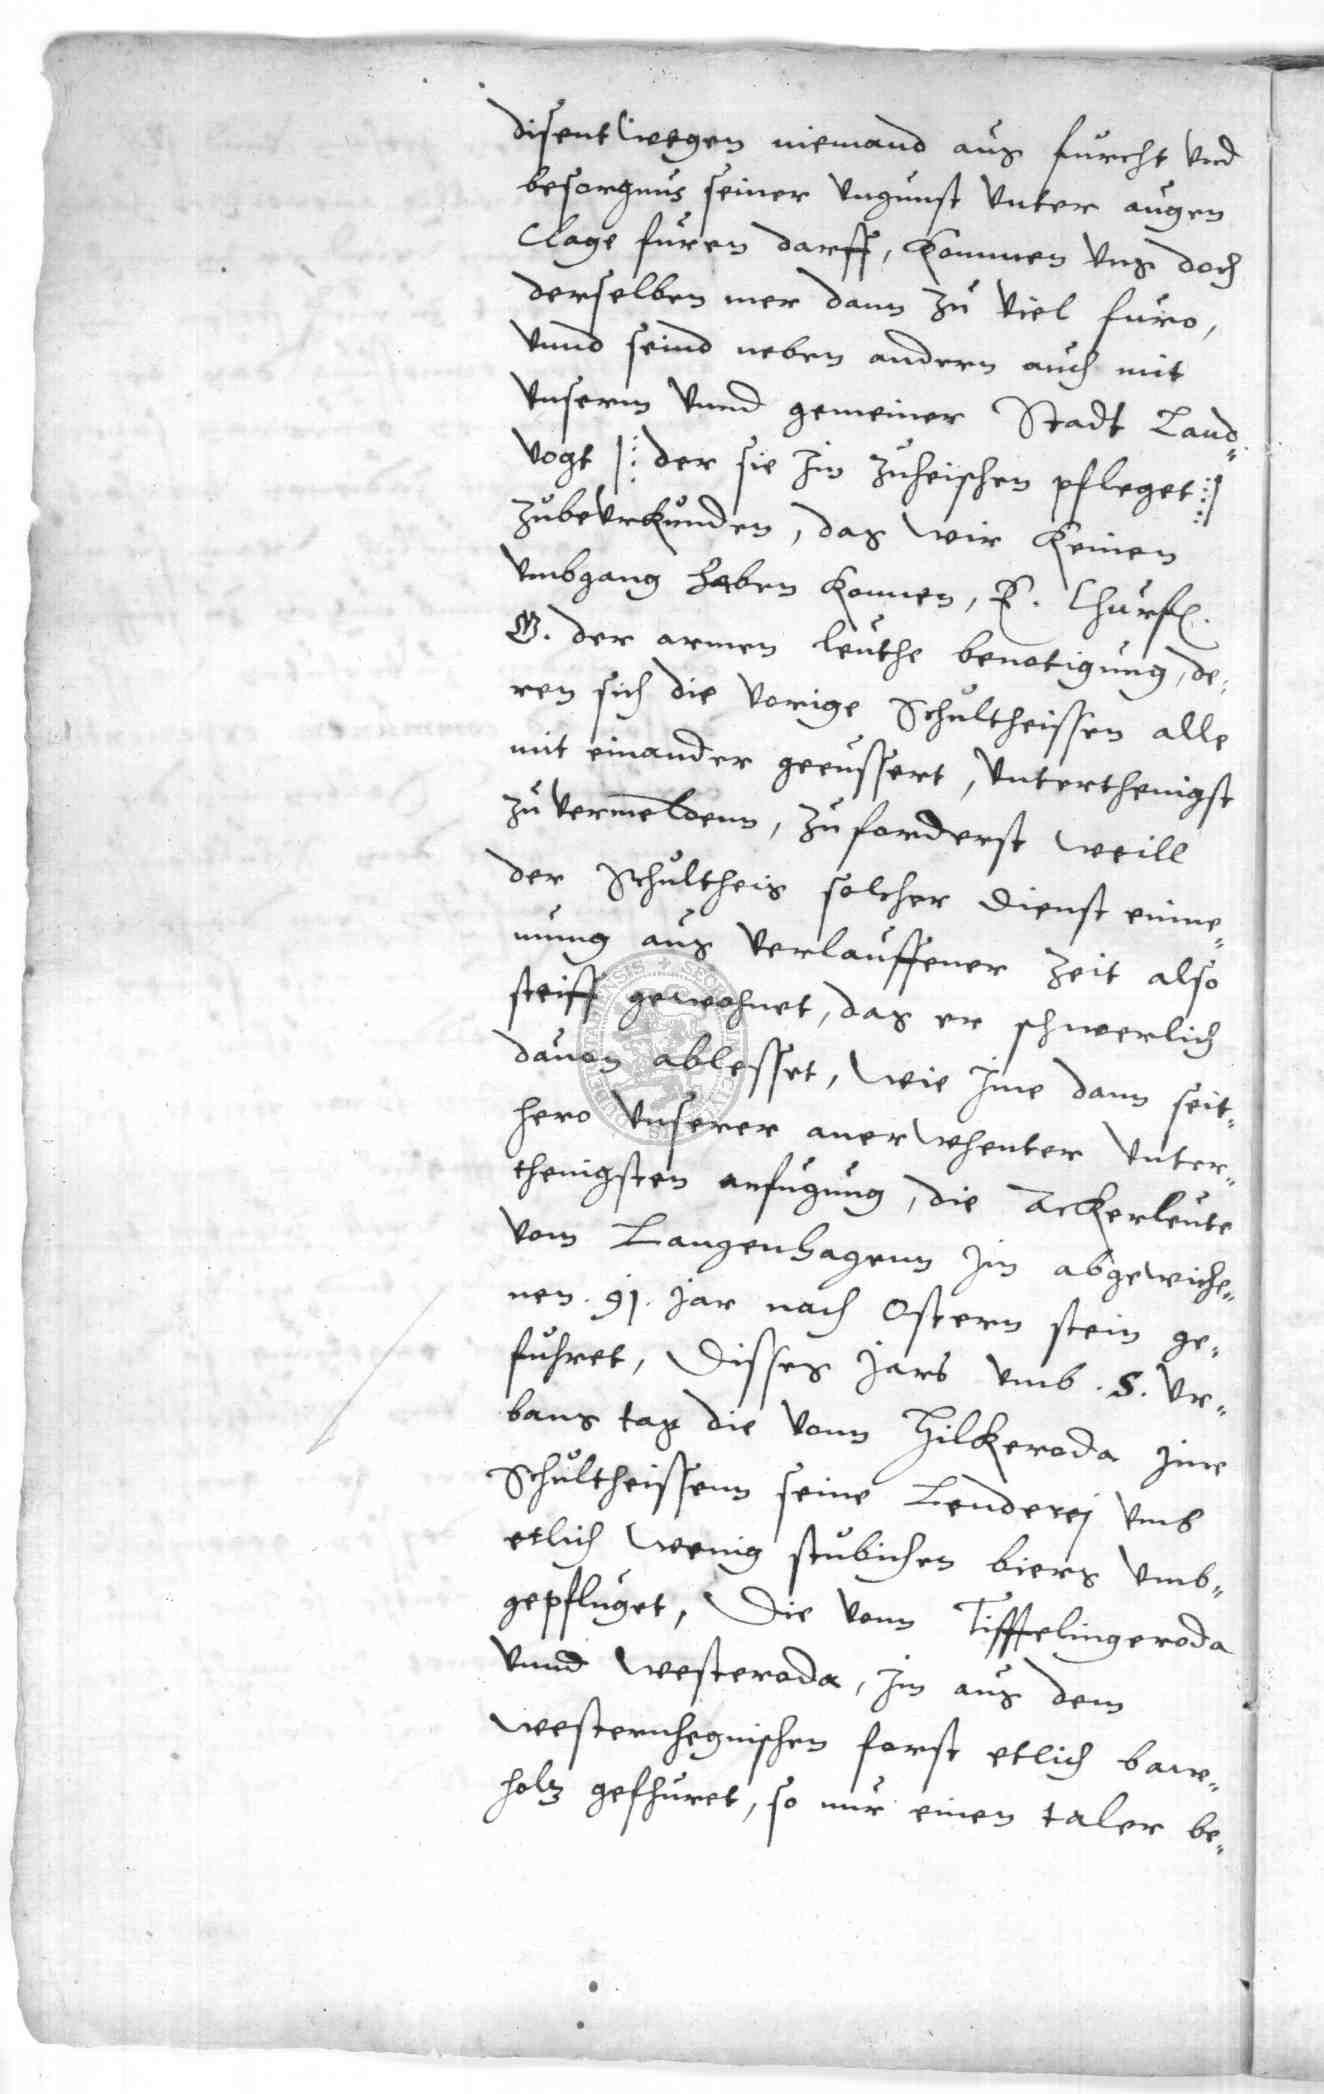 disent wegen niemand aus furcht vnd
besorgnus seiner vngunst vnter augen
Clage furen darff, Kommen vns doch
derselben mer dann zu viel furo,
vnnd seind neben andern auch mit
vnserm vnnd gemeiner Stadt Land„
vogt |: der sie Jm zuheischen pfleget :|
zubeurkunden, das wir keinen
vmbgang haben konnen, E. Churf.
G. der armen leuthe benotigung, de„
ren sich die vorige Schultheissen alle
mit einander geeussert, vnterthenigst
zu vermeldenn, zuforderst weill
der Schultheis solcher dienst einne„
mung aus verlauffener Zeit also
steiff gewohnet, das er schwerlich
dauon ablesset, wie Jme dann seit„
hero vnserer anerwhenter vnter„
thenigsten anfugung, die Ackerleute
vom Langenhagenn Jm abgewiche„
nen .91. Jar nach Ostern stein ge„
fuhret, Disses Jars vmb .S. Vr„
bans tag die vonn Hilkeroda Jme
Schultheissenn seine Lenderej vmb
etlich wenig stubichen biers vmb„
gepfluget, Die vonn Tifftelingeroda
vnnd Westeroda, Jm aus dem
westernhegnischen forst etlich baw„
holtz gefhuret, so nur einen taler be„